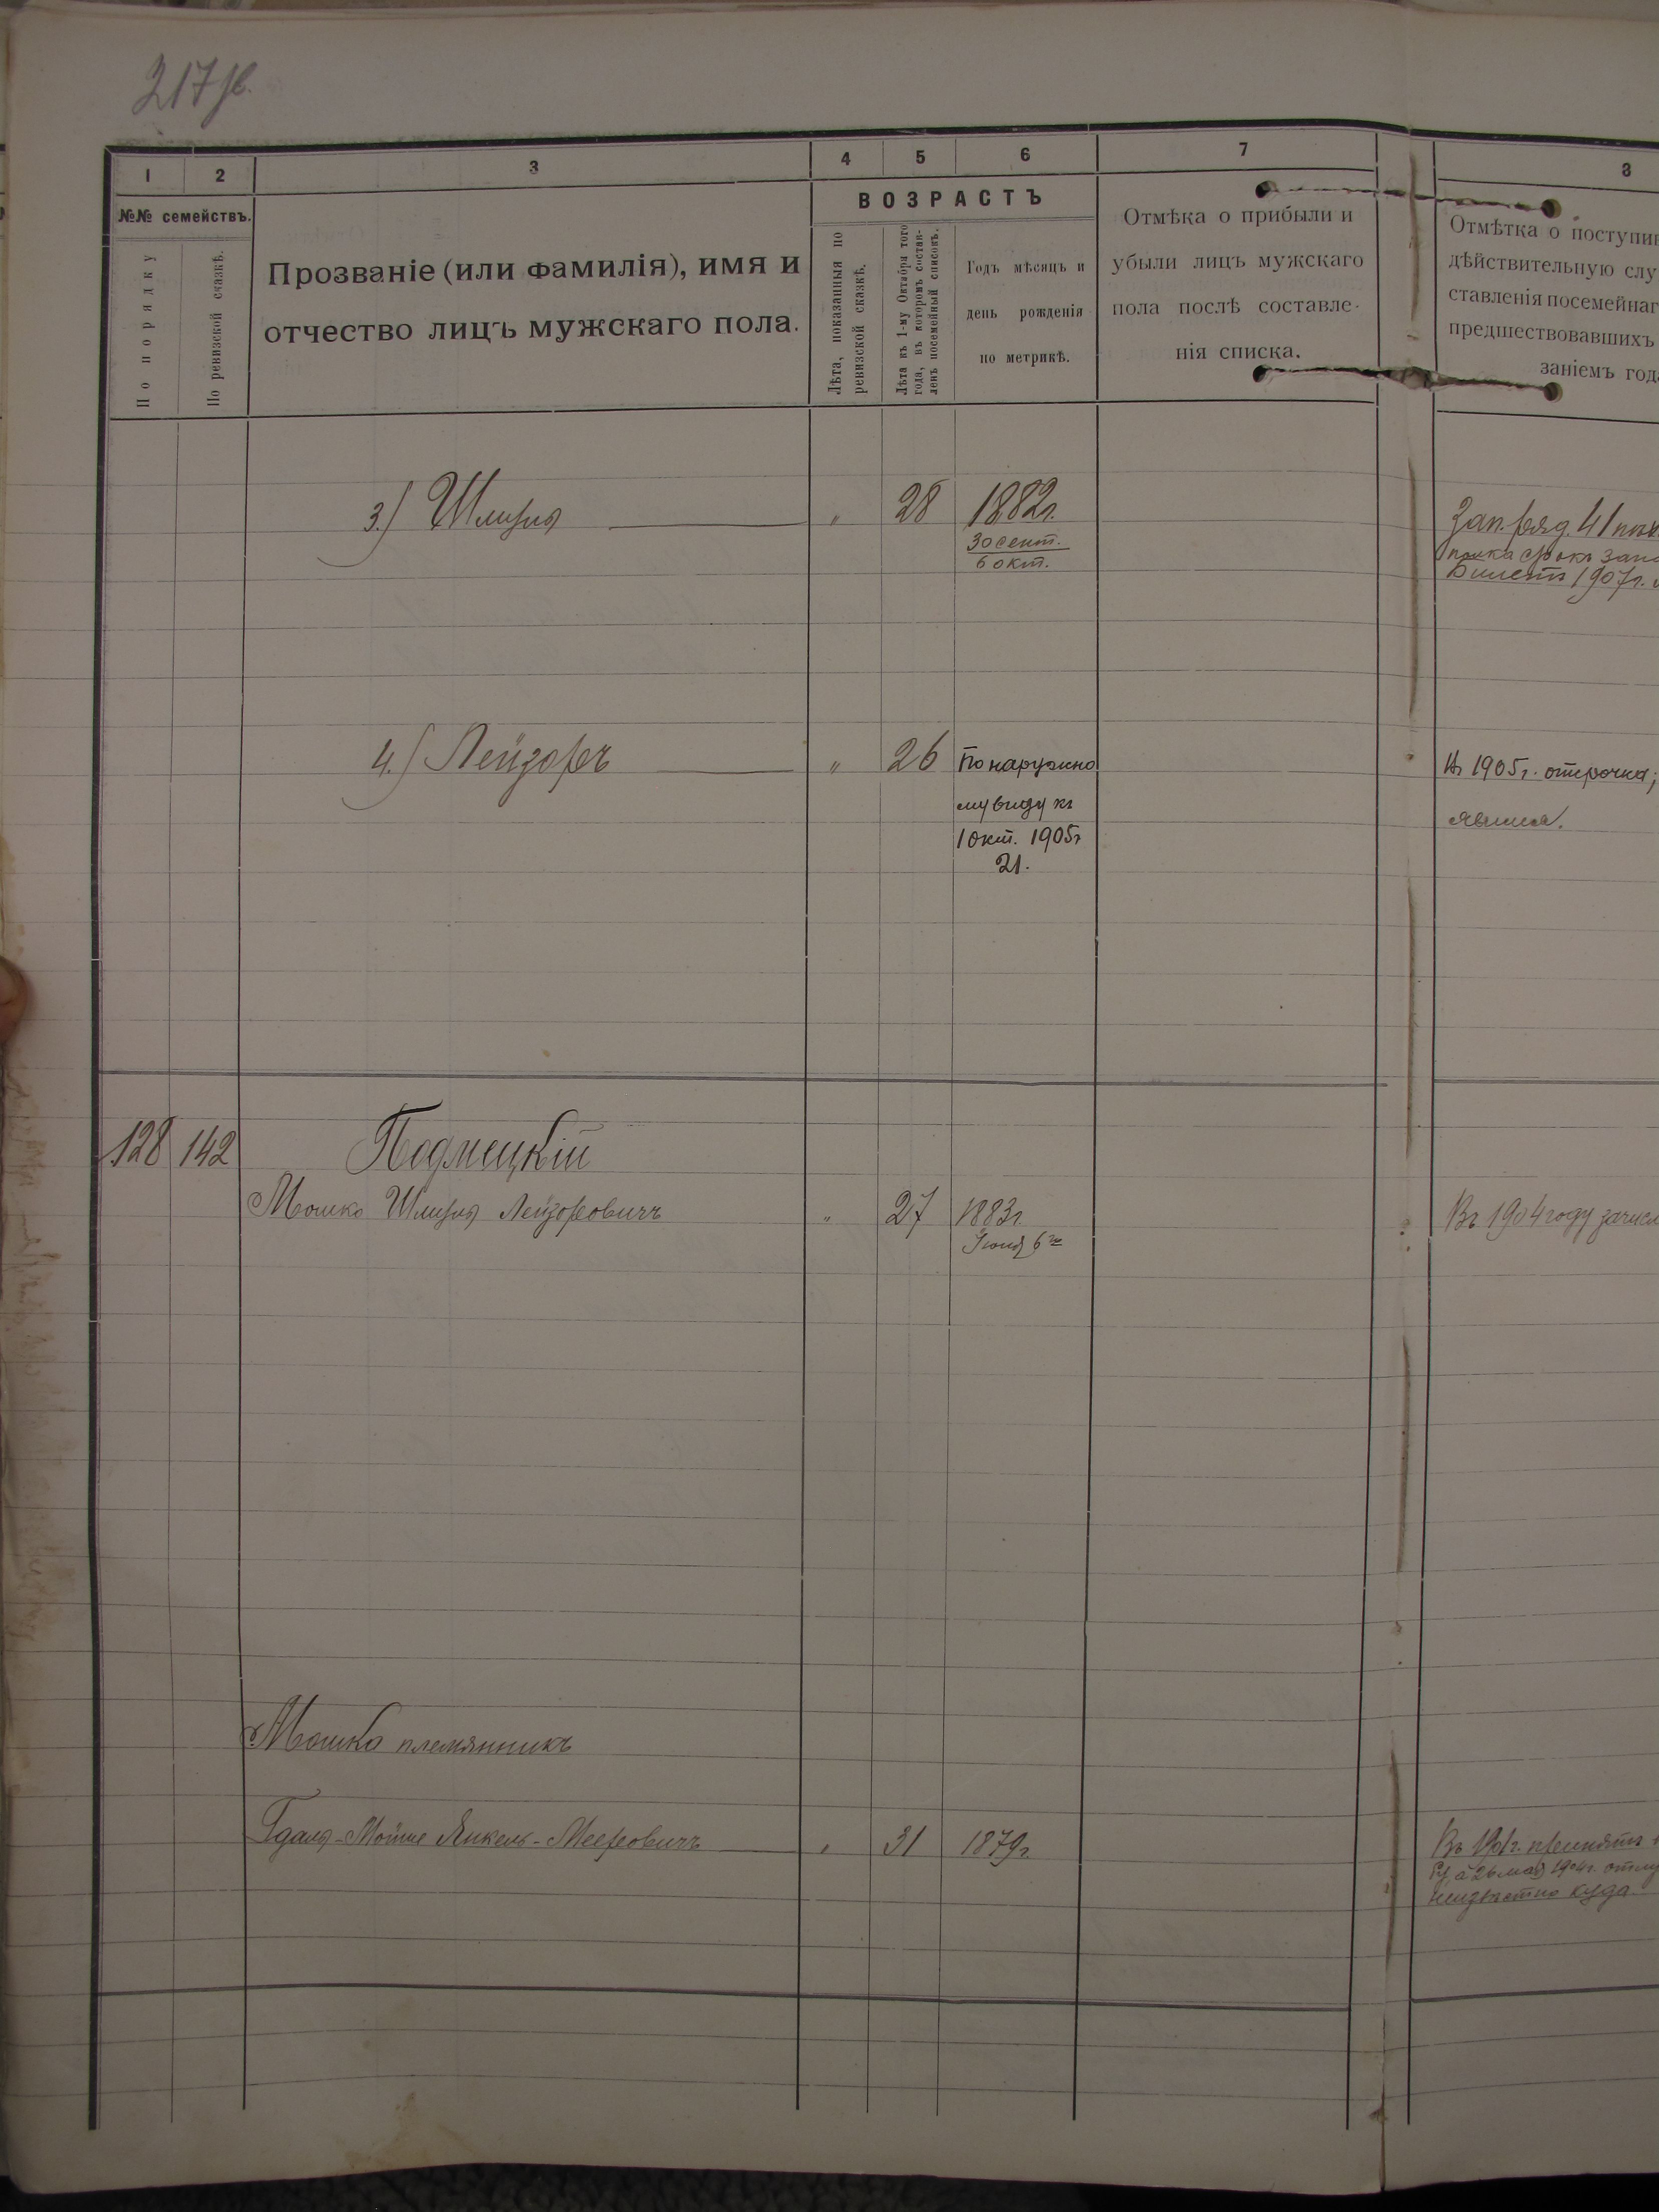 217 об.
1 2 3 4 5 6 7 8
№№ семействъ.
По порядку
По ревизской сказкѣ.
Прозваніе (или фамилія), имя и
отчество лицъ мужскаго пола.
ВОЗРАСТЪ
Лѣта, показанныя по
ревизской сказкѣ.
Лѣта къ 1-му Октября того
года, въ которомъ состав-
ленъ посемейный списокъ.
Годъ мѣсяцъ и
день рожденія
по метрикѣ.
Отмѣка о прибыли и
убыли лицъ мужскаго
пола послѣ составле-
нія списка.
Отмѣтка о поступив
дѣйствительную слу
ставленія посемейнаг
предшествовавшихъ
заніемъ год
3.) Шлиома " 28 1882г.
30 сент.
6 окт.
Зап. ряд. 41 пѣх.
полка срокъ запа
Билетъ 1907г.
4.) Лейзоръ " 26 По наружно
му виду къ
1 окт. 1905г
21.
Въ 1905г. отсрочка;
явился.
128 142 Подлецкій
Мошко Шлиома Лейзоровичъ " 27 1883г.
Іюня 6го
Въ 1904 году зачисл
Мошко племянникъ
Гдаля-Мойше Янкель-Мееровичъ " 31 1879г.
Въ 1901г. принятъ
26 мая 1904г. отлу
неизвѣстно куда